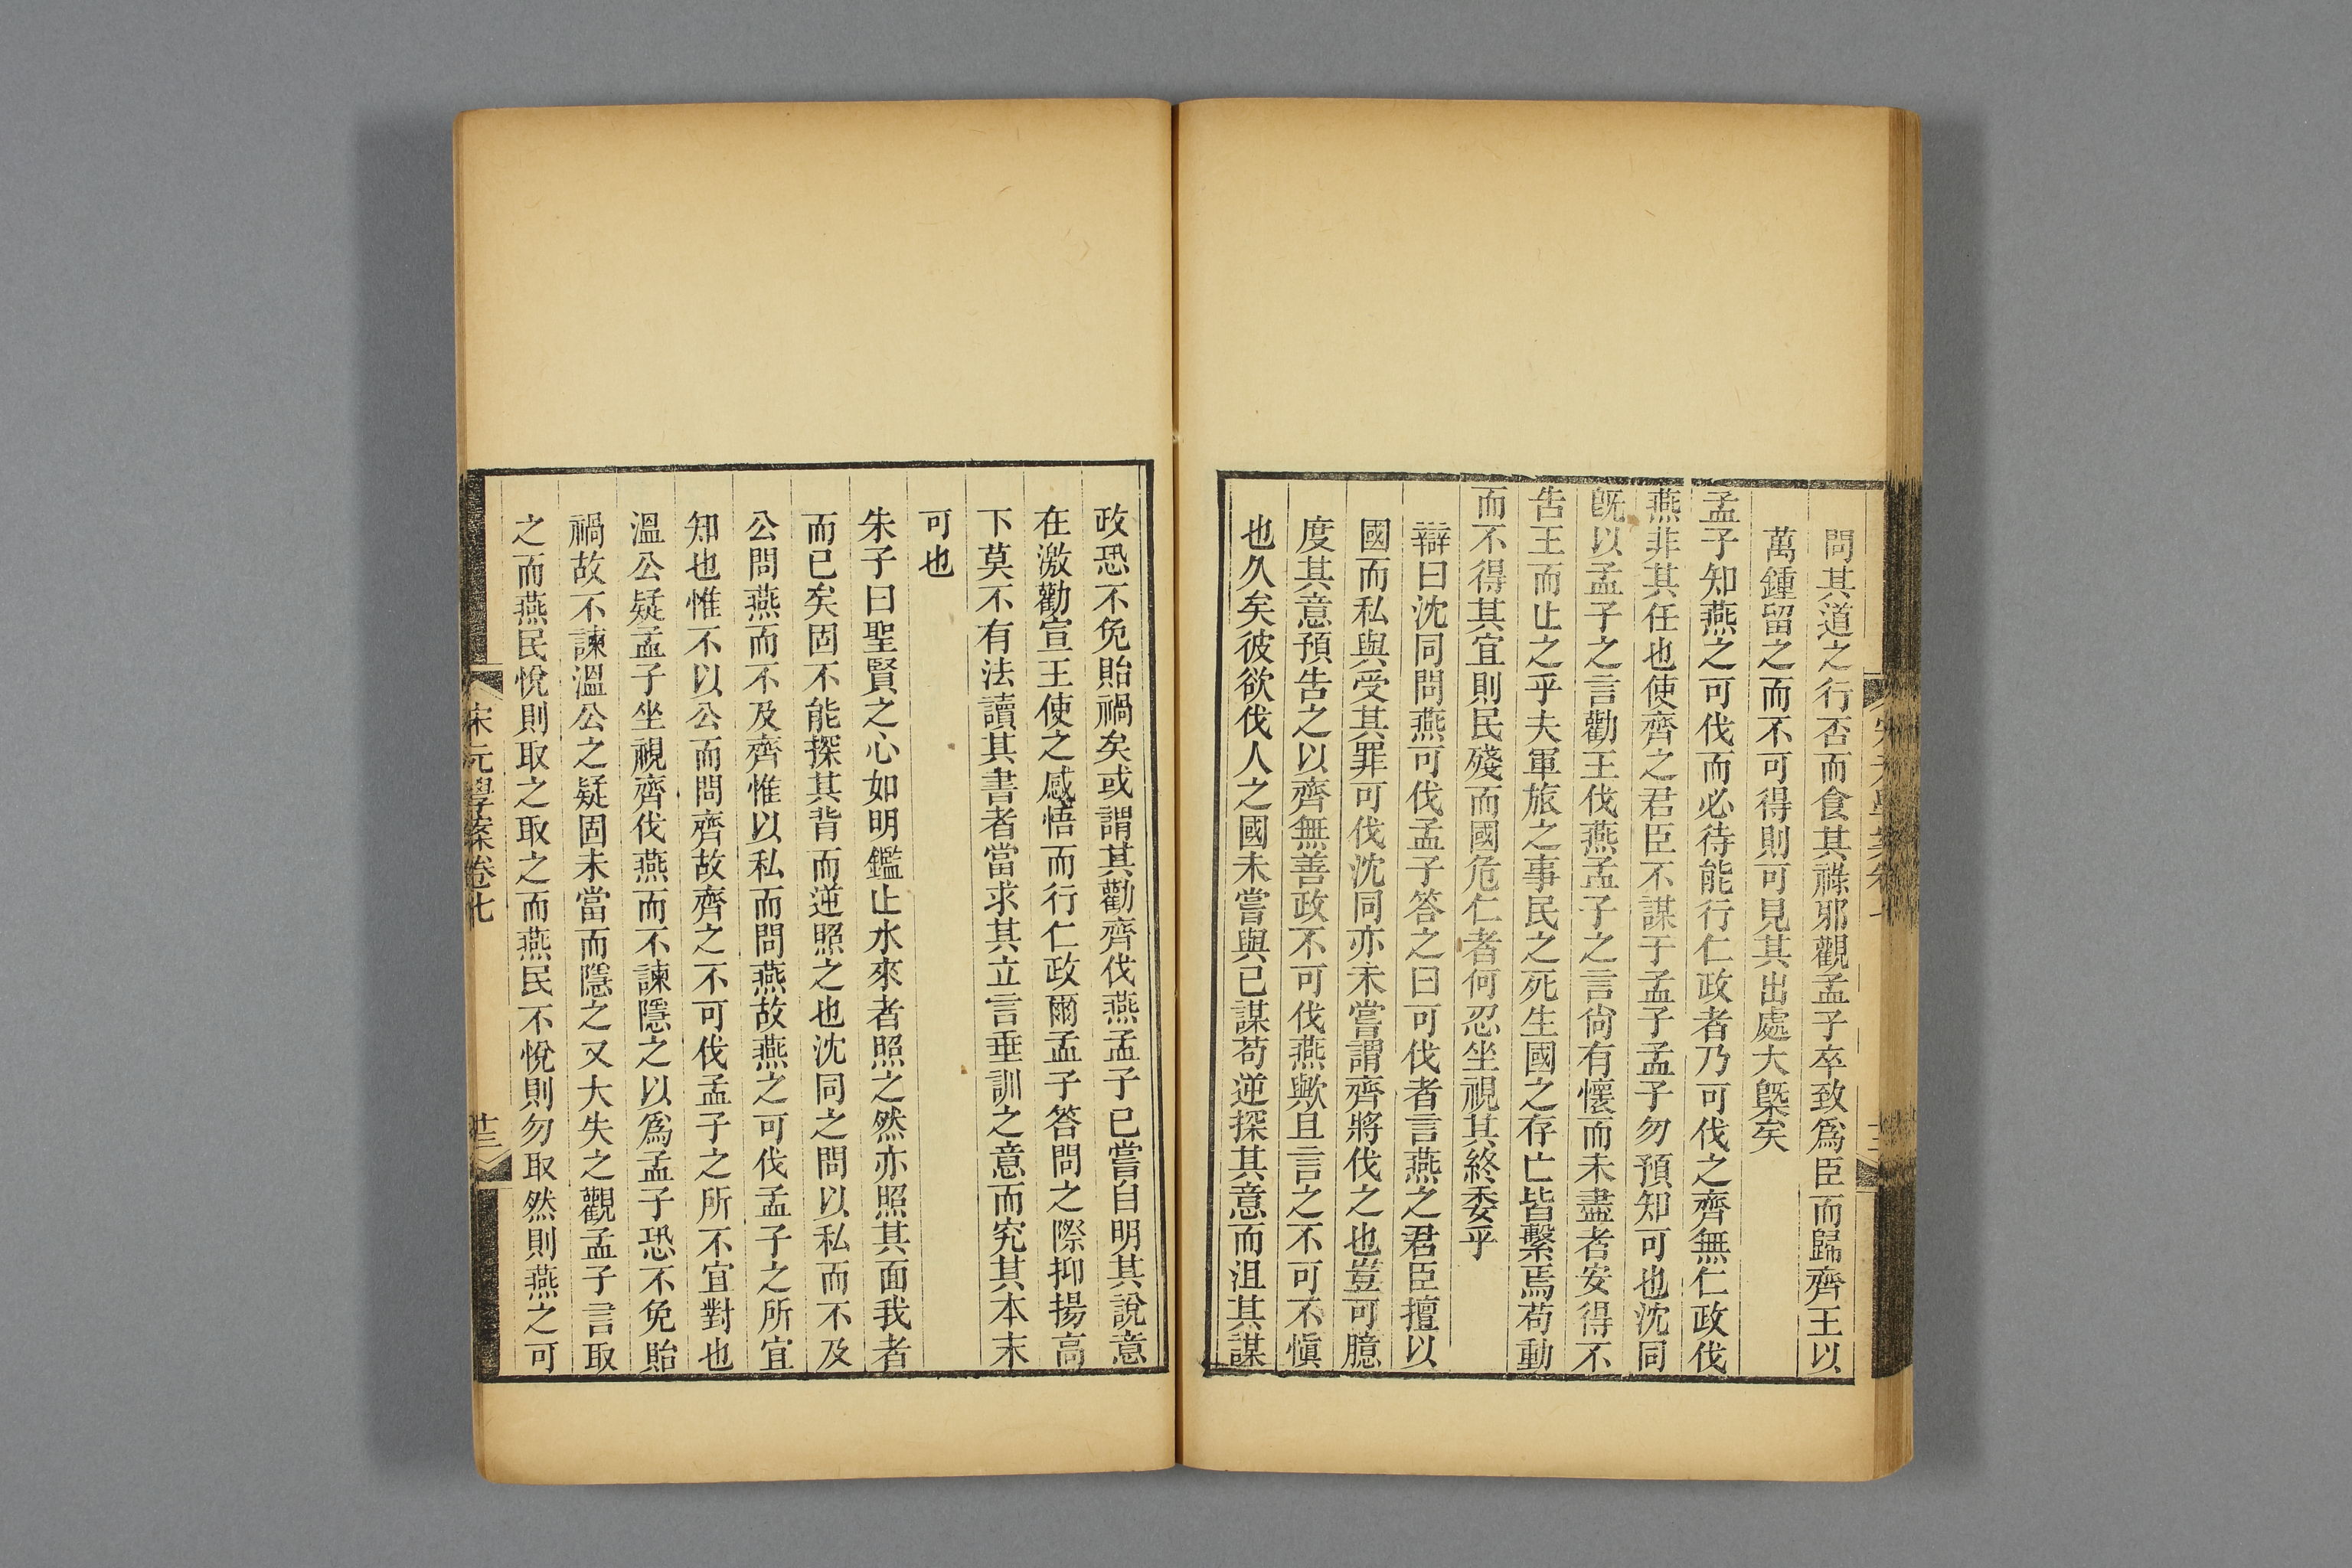 問其道之行否而食其祿邪觀孟子卒致爲臣而歸齊王以
萬鍾留之而不可得則可見其出處大槩矣
孟子知燕之可伐而必待能行仁政者乃可伐之齊無仁政伐
燕非其任也使齊之君臣不謀于孟子孟子勿預知可也沈同
旣以孟子之言勸王伐燕孟子之言尙有懷而未盡者安得不
告王而止之乎夫軍旅之事民之死生國之存亡皆繫焉苟動
而不得其宜則民殘而國危仁者何忍坐視其終委乎
辯曰沈同問燕可伐孟子答之曰可伐者言燕之君臣擅以
國而私與受其罪可伐沈同亦未嘗謂齊將伐之也豈可臆
度其意預告之以齊無善政不可伐燕歟且言之不可不愼
也久矣彼欲伐人之國未嘗與已謀苟逆探其意而沮其謀
政恐不免貽禍矣或謂其勸齊伐燕孟子已嘗自明其說意
在激勸宣王使之感悟而行仁政爾孟子答問之際抑揚高
下莫不有法讀其書者當求其立言垂訓之意而究其本末
可也
朱子曰聖賢之心如明鑑止水來者照之然亦照其面我者
而已矣固不能探其背而逆照之也沈同之問以私而不及
公問燕而不及齊惟以私而問燕故燕之可伐孟子之所宜
知也惟不以公而問齊故齊之不可伐孟子之所不宜對也
溫公疑孟子坐視齊伐燕而不諫隱之以爲孟子恐不免貽
禍故不諫溫公之疑固未當而隱之又大失之觀孟子言取
之而燕民悅則取之取之而燕民不悅則勿取然則燕之可
宋元學案卷七
十三